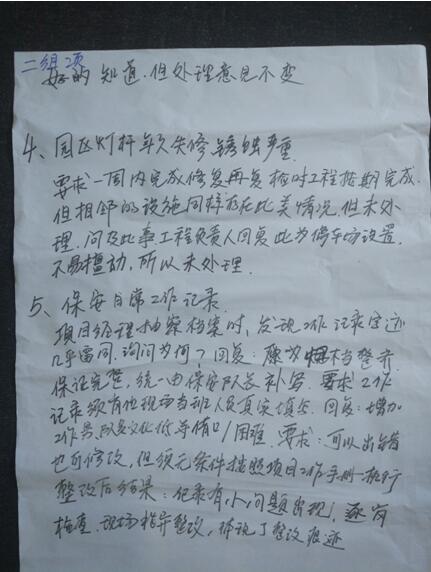 二组2项
好的 知道.但处理意见不变
4、园区灯杆年久失修锈蚀严重
要求一周内完成修复再复检时工程按期完成
但相邻的设施同样存在此类情况但未处
理.问及此事工程负责人回复此为停车场设置.
不易撞动,所以未处理.
5、保安日常工作记录
项目经理抽察档案时,发现工作记录字迹
几乎雷同.询问为何?回复:
保证完整.统一由保安队长补写.要求工作
记录须有位现场当班人员真实填写.回复:增加
工作员.队员文化低等借口/困难.要求:可以出错
也可修改,但须无条件按照项目工作手册一执行
整改后结果:记录有小问题出现,逐岗
检查.现场指导整改,体现了整改痕迹